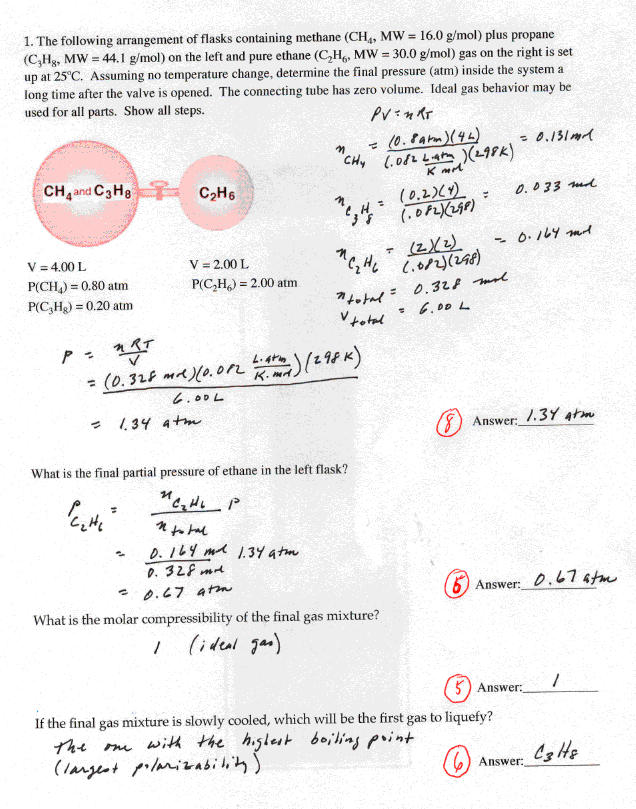 1. The following arrangement of flasks containing methane (CH₄, MW = 16.0 g/mol) plus propane
(C₃H₈, MW = 44.1 g/mol) on the left and pure ethane (C₂H₆, MW = 30.0 g/mol) gas on the right is set
up at 25°C. Assuming no temperature change, determine the final pressure (atm) inside the system a
long time after the valve is opened. The connecting tube has zero volume. Ideal gas behavior may be
used for all parts. Show all steps.
PV = nRT
n CH₄ = (0.8 atm)(4 L) / (.082 L·atm / K mol)(298K) = 0.131 mol
CH₄ and C₃H₈
C₂H₆
n C₃H₈ = (0.2)(4) / (.082)(298) = 0.033 mol
n C₂H₆ = (2)(2) / (.082)(298) = 0.164 mol
V = 4.00 L
V = 2.00 L
P(CH₄) = 0.80 atm
P(C₂H₆) = 2.00 atm
P(C₃H₈) = 0.20 atm
n total = 0.328 mol
V total = 6.00 L
P = nRT / V
= (0.328 mol)(0.082 L·atm / K·mol)(298 K) / 6.00L
= 1.34 atm
8 Answer: 1.34 atm
What is the final partial pressure of ethane in the left flask?
P C₂H₆ = n C₂H₆ / n total P
= 0.164 mol / 0.328 mol 1.34 atm
= 0.67 atm
6 Answer: 0.67 atm
What is the molar compressibility of the final gas mixture?
1 (ideal gas)
5 Answer: 1
If the final gas mixture is slowly cooled, which will be the first gas to liquefy?
the one with the highest boiling point
(largest polarizability)
6 Answer: C₃H₈